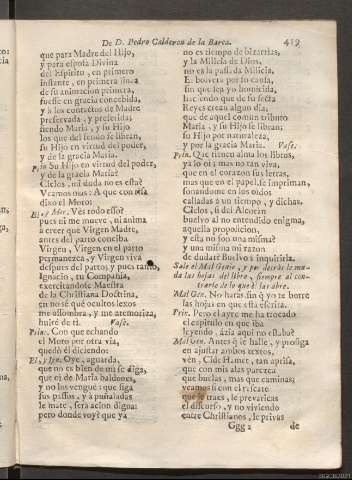 De D. Pedro Calderon de la Barca. 419
que para Madre del Hijo,
y para esposa Divina
del Espiritu, en primero
instante, en primera linea
de su animacion primera,
fuesse en gracia concebida,
y à los contactos de Madre
preservada, y preferida;
siendo Maria, y su Hijo
los que del feudo se libran,
su Hijo en virtud del poder,
y de la gracia Maria.
Prin. Su Hijo en virtud del poder,
y de la gracia Maria?
Cielos, mi duda no es esta?
Veamos mas: A que con essa
dixo el Moro:
El, y Mor. Vès todo esso?
pues ni me mueve, ni anima
à creer que Virgen Madre,
antes del parto conciba
Virgen, Virgen en el parto
permanezca, y Virgen viva
despues del parto; y pues tanto,
Ignacio, tu Compañia,
exercitandose Maestra
de la Christiana Doctrina,
en no sè què ocultos lexos
me assombra, y me atemoriza,
huirè de ti. Vase.
Prin. Con que echando
el Moro por otra via,
quedò èl diciendo:
El, y Ign. Oye, aguarda,
que no es bien de mi se diga,
que el de Maria baldones,
y no los venguè: que siga
sus passos, y à puñaladas
le mate, serà accion digna:
pero donde voy? que ya
no es tiempo de bizarrias,
y la Milicia de Dios,
no es la passada Milicia.
El bolverè por tu causa,
sin que sea yo homicida,
haciendo que de su secta
Reyes crean algun dia,
que de aquel comun tributo
Maria, y su Hijo se libran;
su Hijo por naturaleza,
y por la gracia Maria. Vase.
Prin. Que tienen alma los libros,
yà lo oì; mas no tan viva,
que en el corazon sus letras,
mas que en el papel se impriman,
sonandome en los oidos
calladas à un tiempo, y dichas,
Cielos, si del Alcoràn
buelvo al no entendido enigma,
aquella proposicion,
y esta no son una misma?
y una misma mi razon
de dudar? Buelvo à inquirirla.
Sale el Mal Genio, y por detràs le muda
las hojas del libro, siempre al contrario
de lo que èl las abre.
Mal Gen. No haràs sin què yo te borre
las hojas en que està escrita.
Prin. Pero el ayre me ha trocado
el capitulo en que iba
leyendo, àzia aqui no estaba?
Mal Gen. Antes q̃ le halle, y prosiga
en ajustar ambos textos,
vèn, Cide Hamet, tan aprisa,
que con mis alas parezca
que buelas, mas que caminas;
veamos si con el rescate
que traes, le prevaricas
el discurso, y no viviendo
entre Christianos, le privas
Ggg 2 de